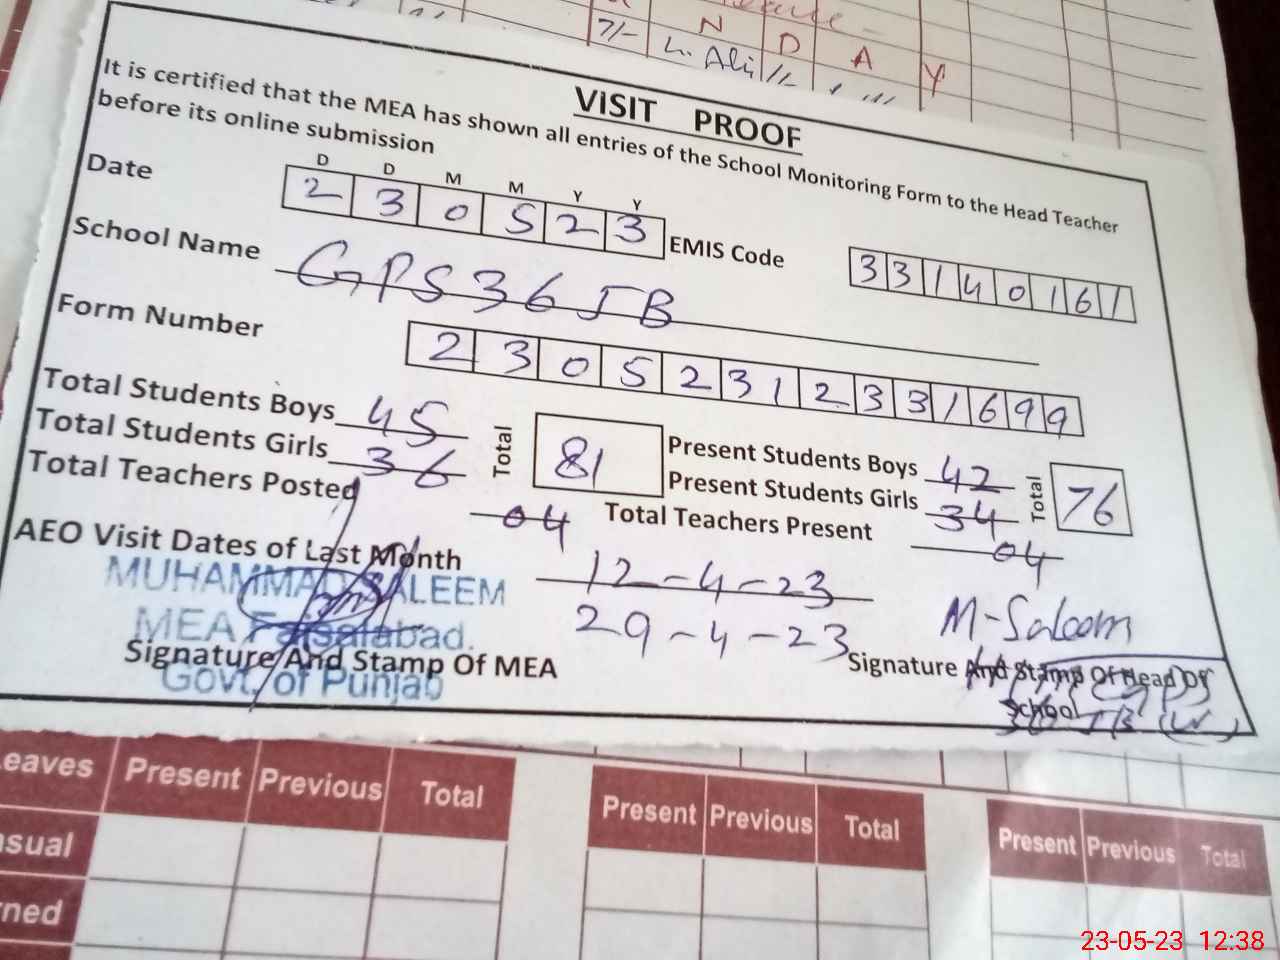 7/- N D A Y
Ali
VISIT PROOF
It is certified that the MEA has shown all entries of the School Monitoring Form to the Head Teacher
before its online submission
D D M M Y Y
Date 2 3 0 5 2 3 EMIS Code 3 3 1 4 0 1 6 1
School Name GPS 36 JB
Form Number 2 3 0 5 2 3 1 2 3 3 1 6 9 9
Total Students Boys 45 Total 81 Present Students Boys 42 Total 76
Total Students Girls 36 Present Students Girls 34
Total Teachers Posted 04 Total Teachers Present 04
AEO Visit Dates of Last Month 12-4-23
29-4-23
MUHAMMAD SALEEM
MEA Faisalabad.
Govt. of Punjab
Signature And Stamp Of MEA
M-Saleem
Signature And Stamp Of Head Of
School
eaves Present Previous Total Present Previous Total Present Previous Total
sual
ned
23-05-23 12:38